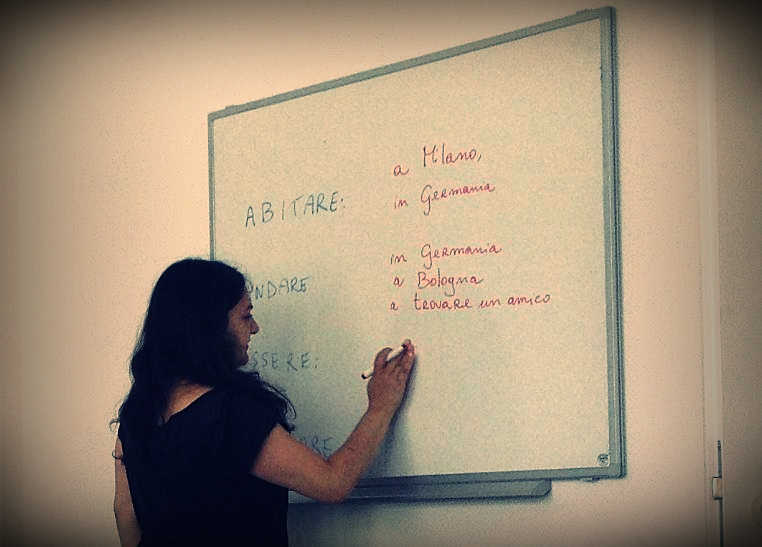 a Milano,
ABITARE:
in Germania
in Germania
a Bologna
NDARE
a trovare un amico
SSERE:
ARE